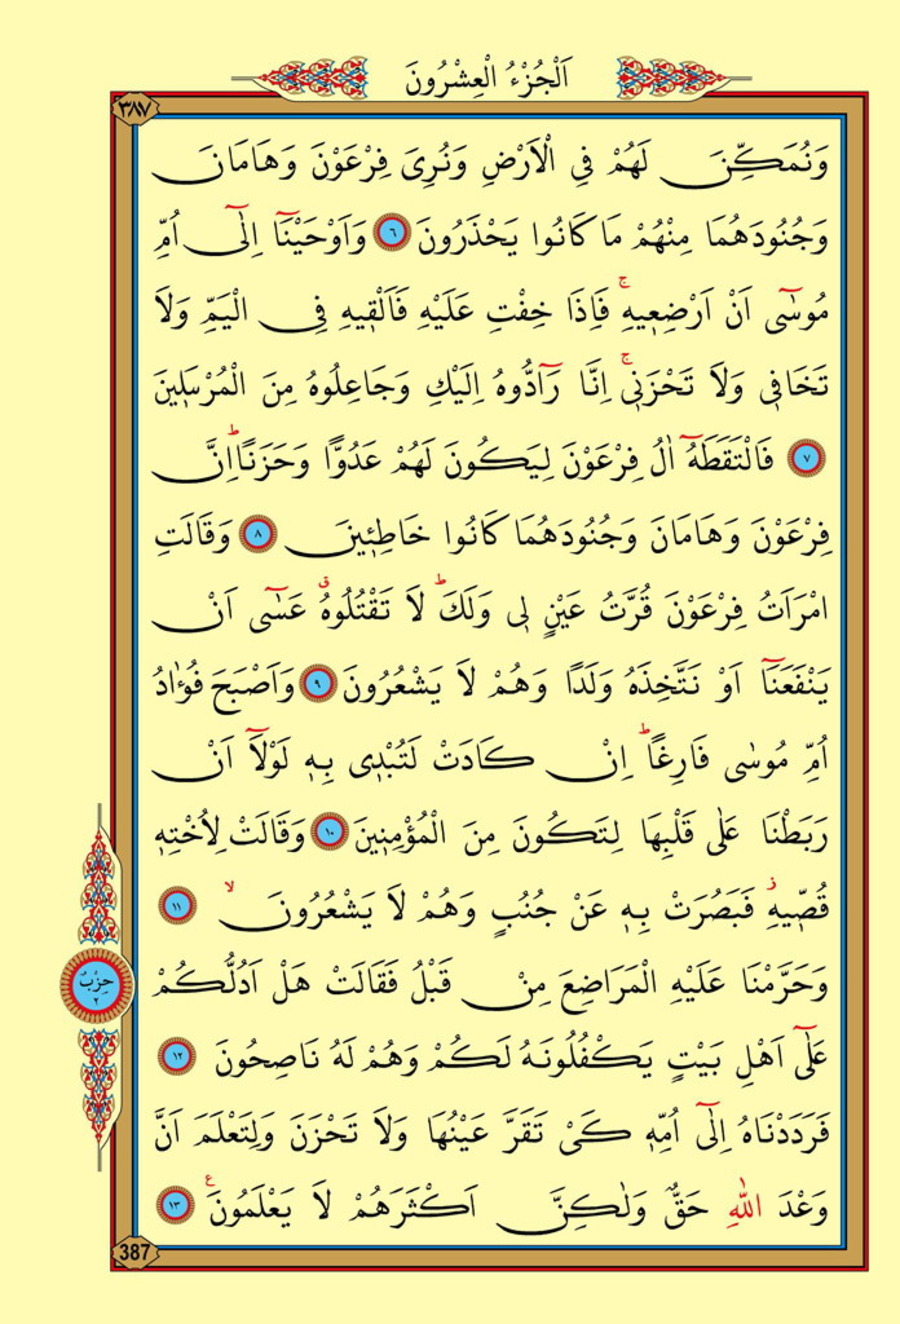 اَلْجُزْءُ الْعِشْرُونَ
٣٨٧
وَنُمَكِّنَ لَهُمْ فِي الْاَرْضِ وَنُرِيَ فِرْعَوْنَ وَهَامَانَ
وَجُنُودَهُمَا مِنْهُمْ مَا كَانُوا يَحْذَرُونَ ﴿٦﴾ وَاَوْحَيْنَٓا اِلٰٓى اُمِّ
مُوسٰٓى اَنْ اَرْضِعٖيهِۚ فَاِذَا خِفْتِ عَلَيْهِ فَاَلْقٖيهِ فِي الْيَمِّ وَلَا
تَخَافٖي وَلَا تَحْزَنٖيۚ اِنَّا رَٓادُّوهُ اِلَيْكِ وَجَاعِلُوهُ مِنَ الْمُرْسَلٖينَ
﴿٧﴾ فَالْتَقَطَهُٓ اٰلُ فِرْعَوْنَ لِيَكُونَ لَهُمْ عَدُوًّا وَحَزَنًاؕ اِنَّ
فِرْعَوْنَ وَهَامَانَ وَجُنُودَهُمَا كَانُوا خَاطِـٖٔينَ ﴿٨﴾ وَقَالَتِ
امْرَاَتُ فِرْعَوْنَ قُرَّتُ عَيْنٍ لٖي وَلَكَؕ لَا تَقْتُلُوهُࣗ عَسٰٓى اَنْ
يَنْفَعَنَٓا اَوْ نَتَّخِذَهُ وَلَدًا وَهُمْ لَا يَشْعُرُونَ ﴿٩﴾ وَاَصْبَحَ فُؤٰادُ
اُمِّ مُوسٰى فَارِغًاؕ اِنْ كَادَتْ لَتُبْدٖي بِهٖ لَوْلَٓا اَنْ
رَبَطْنَا عَلٰى قَلْبِهَا لِتَكُونَ مِنَ الْمُؤْمِنٖينَ ﴿١٠﴾ وَقَالَتْ لِاُخْتِهٖ
قُصّٖيهِؗ فَبَصُرَتْ بِهٖ عَنْ جُنُبٍ وَهُمْ لَا يَشْعُرُونَۙ ﴿١١﴾
وَحَرَّمْنَا عَلَيْهِ الْمَرَاضِعَ مِنْ قَبْلُ فَقَالَتْ هَلْ اَدُلُّكُمْ
حِزْبٌ
٢
عَلٰٓى اَهْلِ بَيْتٍ يَكْفُلُونَهُ لَكُمْ وَهُمْ لَهُ نَاصِحُونَ ﴿١٢﴾
فَرَدَدْنَاهُ اِلٰٓى اُمِّهٖ كَيْ تَقَرَّ عَيْنُهَا وَلَا تَحْزَنَ وَلِتَعْلَمَ اَنَّ
وَعْدَ اللّٰهِ حَقٌّ وَلٰكِنَّ اَكْثَرَهُمْ لَا يَعْلَمُونَࣖ ﴿١٣﴾
387